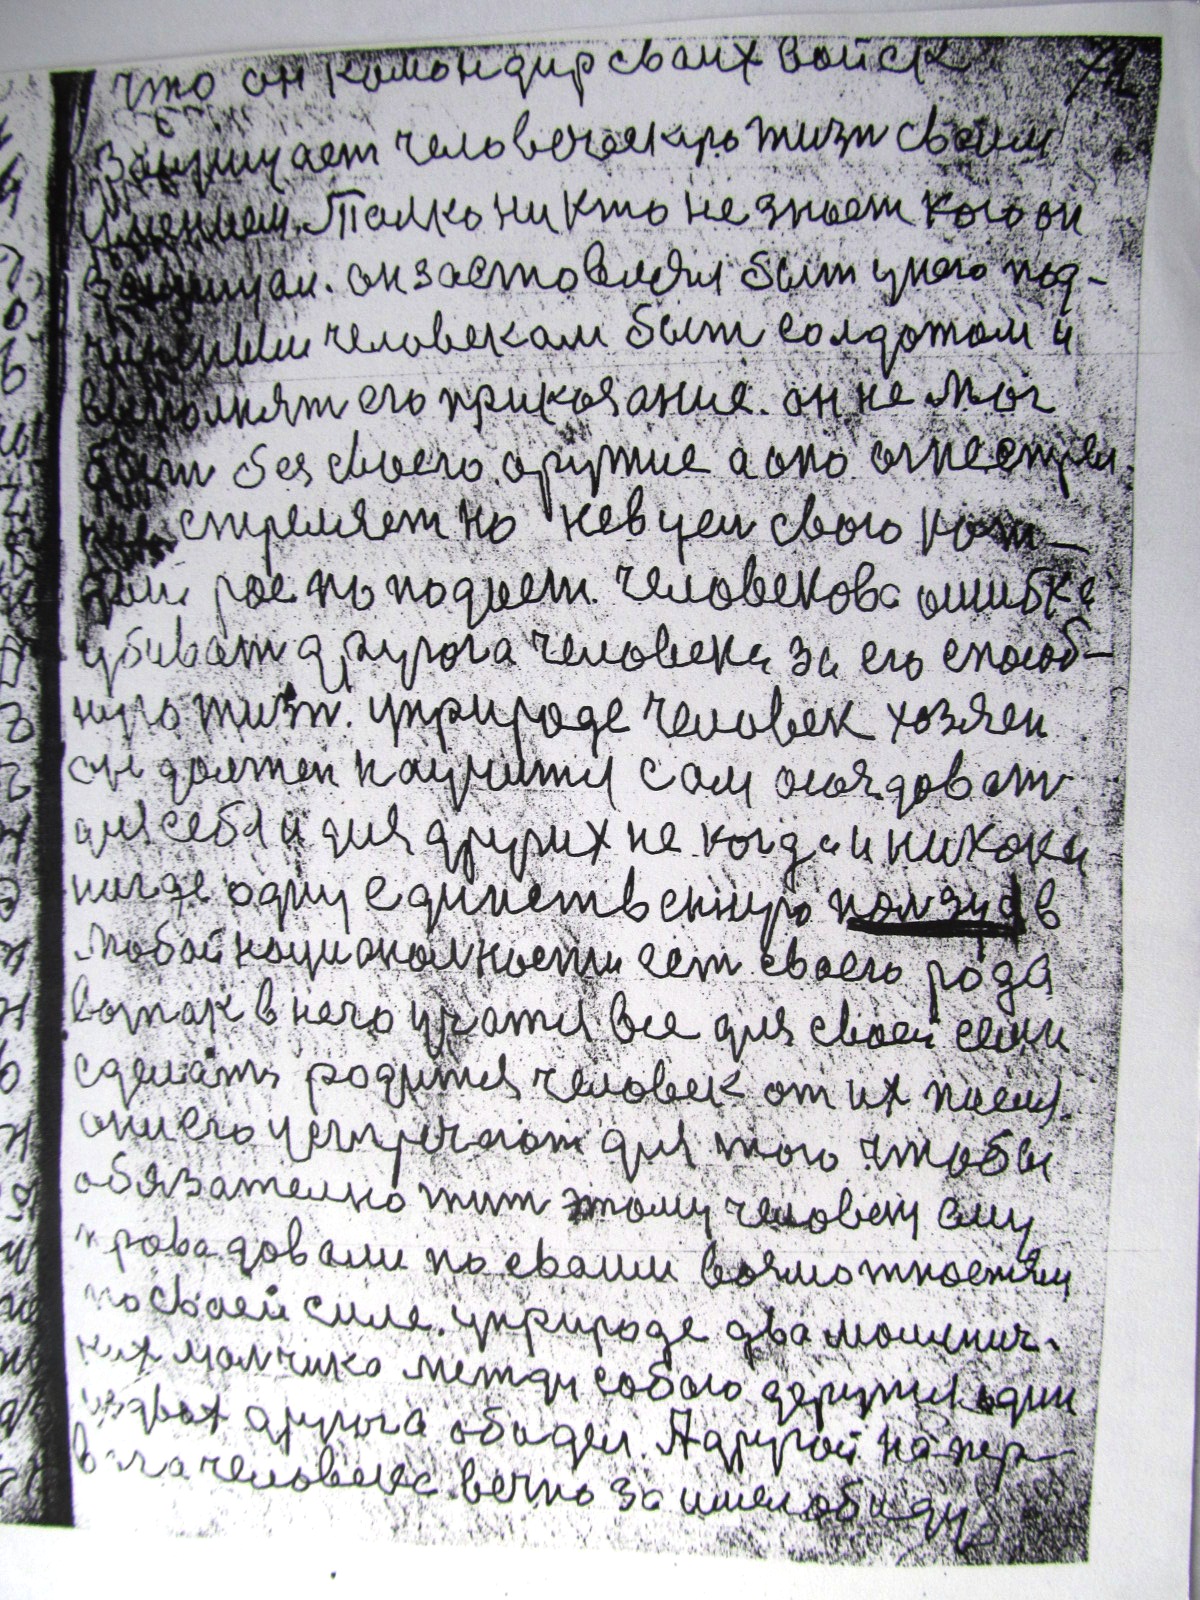 что он командир своих войск 72
Защищает человеческую жизн своим
умением. Толко ни кто не знает кого он
Защищал. он заставлял быт у него под-
чиненым человекам быт солдатом и
выполнят его приказание. он не мог
быт без своего оружие а оно огнестрел
стреляет но не в цел свого
рое по подает. человекова ошибка
убиват другога человека за его способ-
ную жизн. у природе человек хозяен
он должен научится сам огаядоват
для себя и для других не когда и никока
нигде одну единственную ползу в
любой национолности ест своего рода
вотак в него учатся все для своей семи
сделать родится человек от их после.
они его устречают для того чтобы
обязателно жит этому человеку ему
провадовали по своим возможностям
по своей силе. у природе два
ких малчика между собою дружил один
из двох другога обидел. А другой на пер-
вога человека вечно за имел обиду